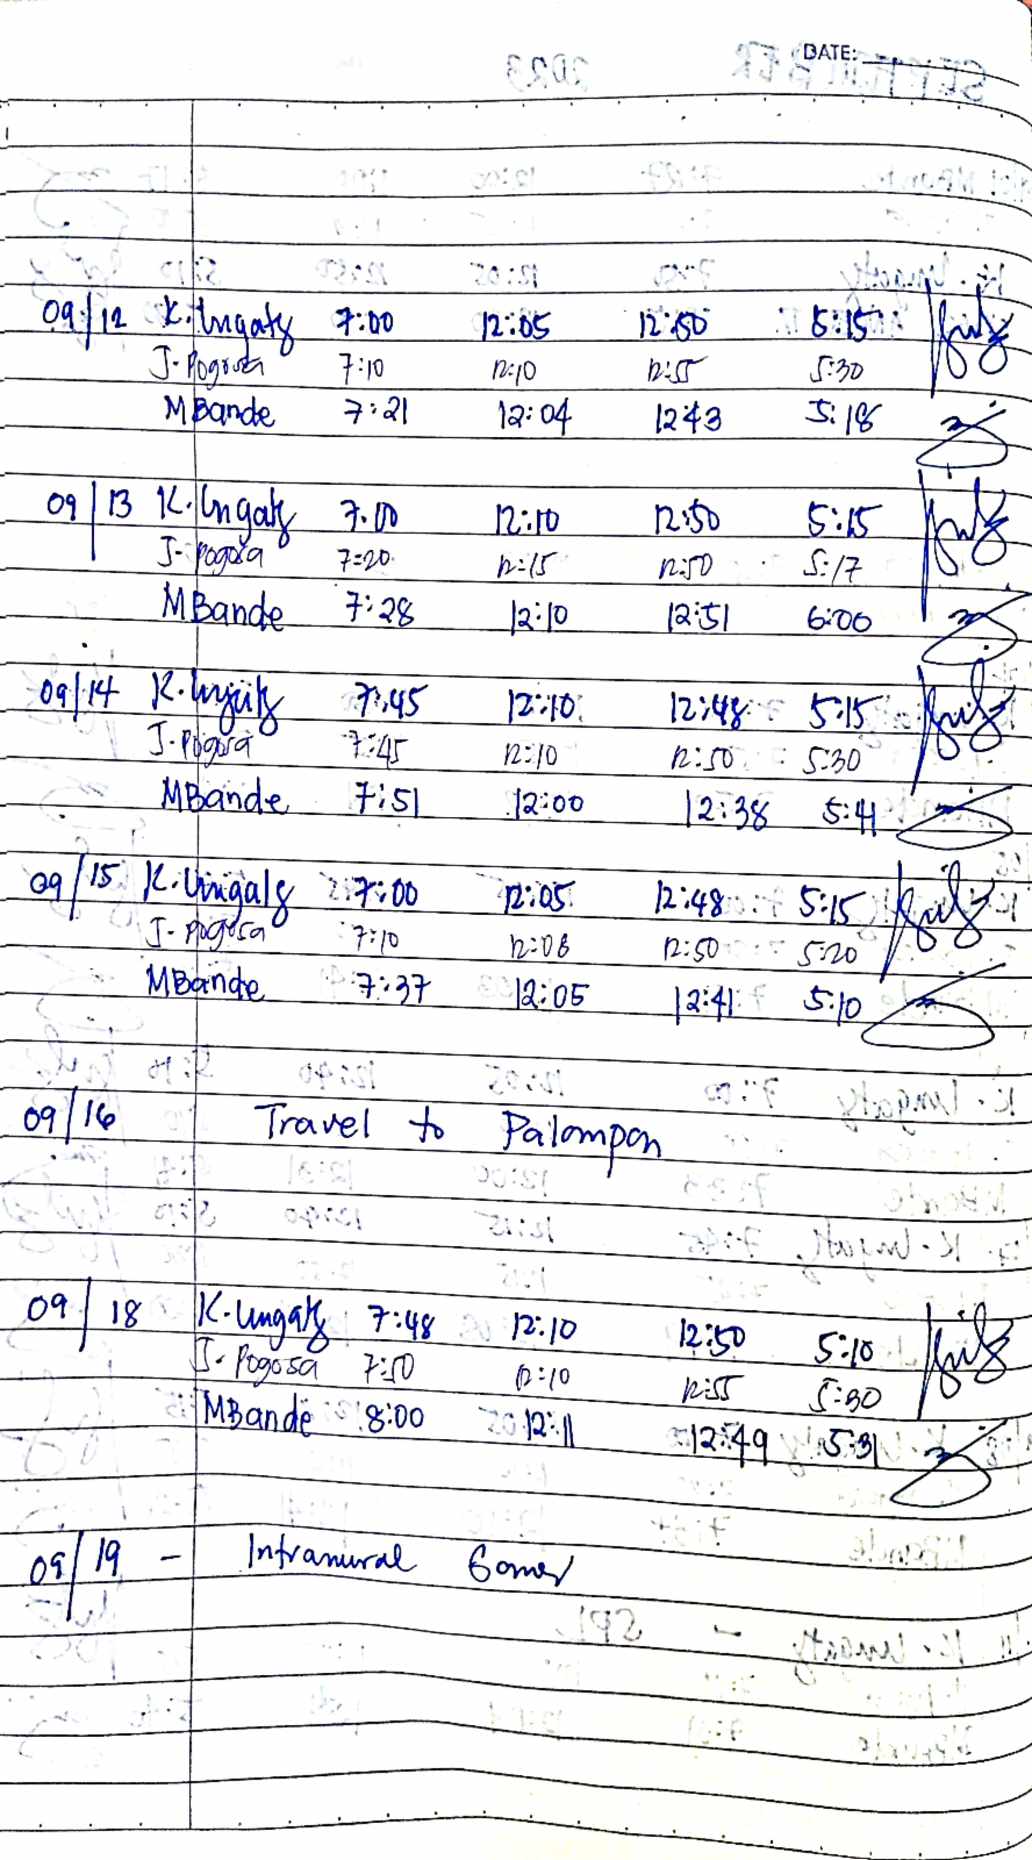 DATE:
09/12 K. Ungaty 7:00 12:05 12:50 5:15
J. Pogosa 7:10 12:10 12:55 5:30
MBande 7:21 12:04 12:43 5:18
09/13 K. Ungaty 7:00 12:10 12:50 5:15
J. Pogosa 7:20 12:15 12:50 5:17
MBande 7:28 12:10 12:51 6:00
09/14 K. 7:45 12:10 12:48 5:15
J. Pogosa 7:45 12:10 12:50 5:30
MBande 7:51 12:00 12:38 5:41
09/15 K. 7:00 12:05 12:48 5:15
J. Pogosa 7:10 12:08 12:50 5:20
MBande 7:37 12:05 12:41 5:10
09/16 Travel to Palompon
09/18 K. Ungaty 7:48 12:10 12:50 5:10
J. Pogosa 7:50 12:10 12:55 5:30
MBande 8:00 12:11 12:49 5:31
09/19 - Intramural Games